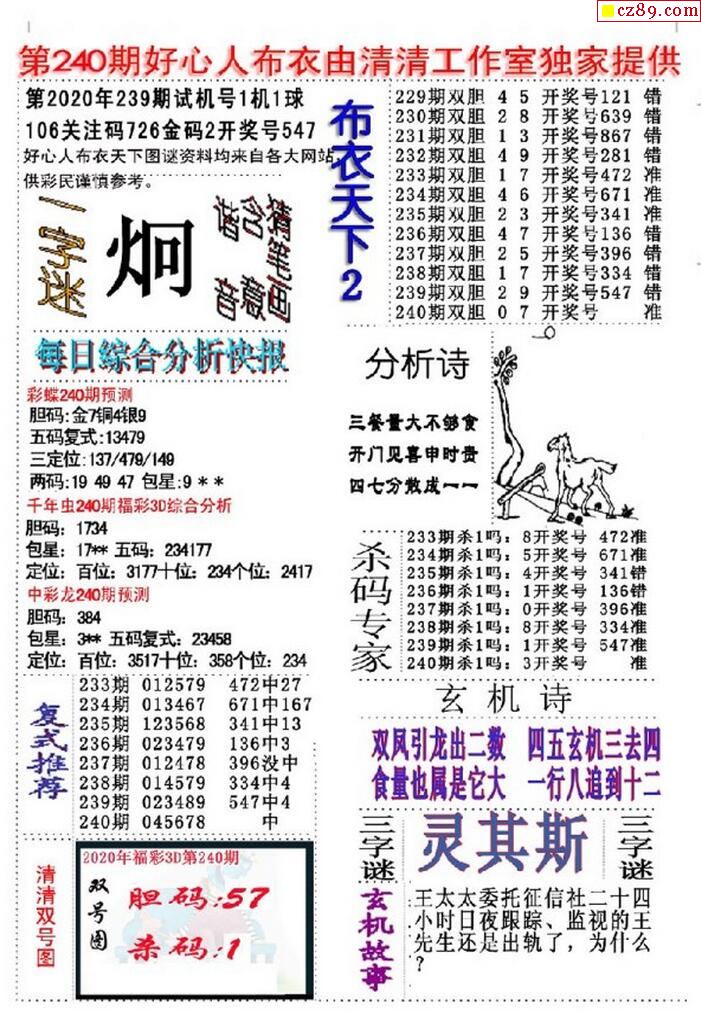 cz89.com
第240期好心人布衣由清清工作室独家提供
第2020年239期试机号1机1球
106关注码726金码2开奖号547
好心人布衣天下图谜资料均来自各大网站,
供彩民谨慎参考。
一字迷
炯
谐音
含意
猪笔画
布衣天下2
229期双胆 4 5 开奖号121 错
230期双胆 2 8 开奖号639 错
231期双胆 1 3 开奖号867 错
232期双胆 4 9 开奖号281 错
233期双胆 1 7 开奖号472 准
234期双胆 4 6 开奖号671 准
235期双胆 2 3 开奖号341 准
236期双胆 4 7 开奖号136 错
237期双胆 2 5 开奖号396 错
238期双胆 1 7 开奖号334 错
239期双胆 2 9 开奖号547 错
240期双胆 0 7 开奖号 准
每日综合分析快报
彩蝶240期预测
胆码:金7铜4银9
五码复式:13479
三定位:137/479/149
两码:19 49 47 包星:9 * *
千年虫240期福彩3D综合分析
胆码: 1734
包星: 17** 五码: 234177
定位: 百位: 3177十位: 234个位: 2417
中彩龙240期预测
胆码: 384
包星: 3** 五码复式: 23458
定位: 百位: 3517十位: 358个位: 234
分析诗
三餐量大不够食
开门见喜申时贵
四七分散成一一
杀码专家
233期杀1吗: 8开奖号 472准
234期杀1吗: 5开奖号 671准
235期杀1吗: 4开奖号 341错
236期杀1吗: 1开奖号 136错
237期杀1吗: 0开奖号 396准
238期杀1吗: 8开奖号 334准
239期杀1吗: 1开奖号 547准
240期杀1吗: 3开奖号 准
复式推荐
233期 012579 472中27
234期 013467 671中167
235期 123568 341中13
236期 023479 136中3
237期 012478 396没中
238期 014579 334中4
239期 023489 547中4
240期 045678 中
玄机诗
双凤引龙出二数 四五玄机三去四
食量也属是它大 一行八追到十二
三字谜
灵其斯
三字谜
清清双号图
2020年福彩3D第240期
双号图
胆码:57
杀码:1
玄机故事
王太太委托征信社二十四
小时日夜跟踪、监视的王
先生还是出轨了，为什么
？